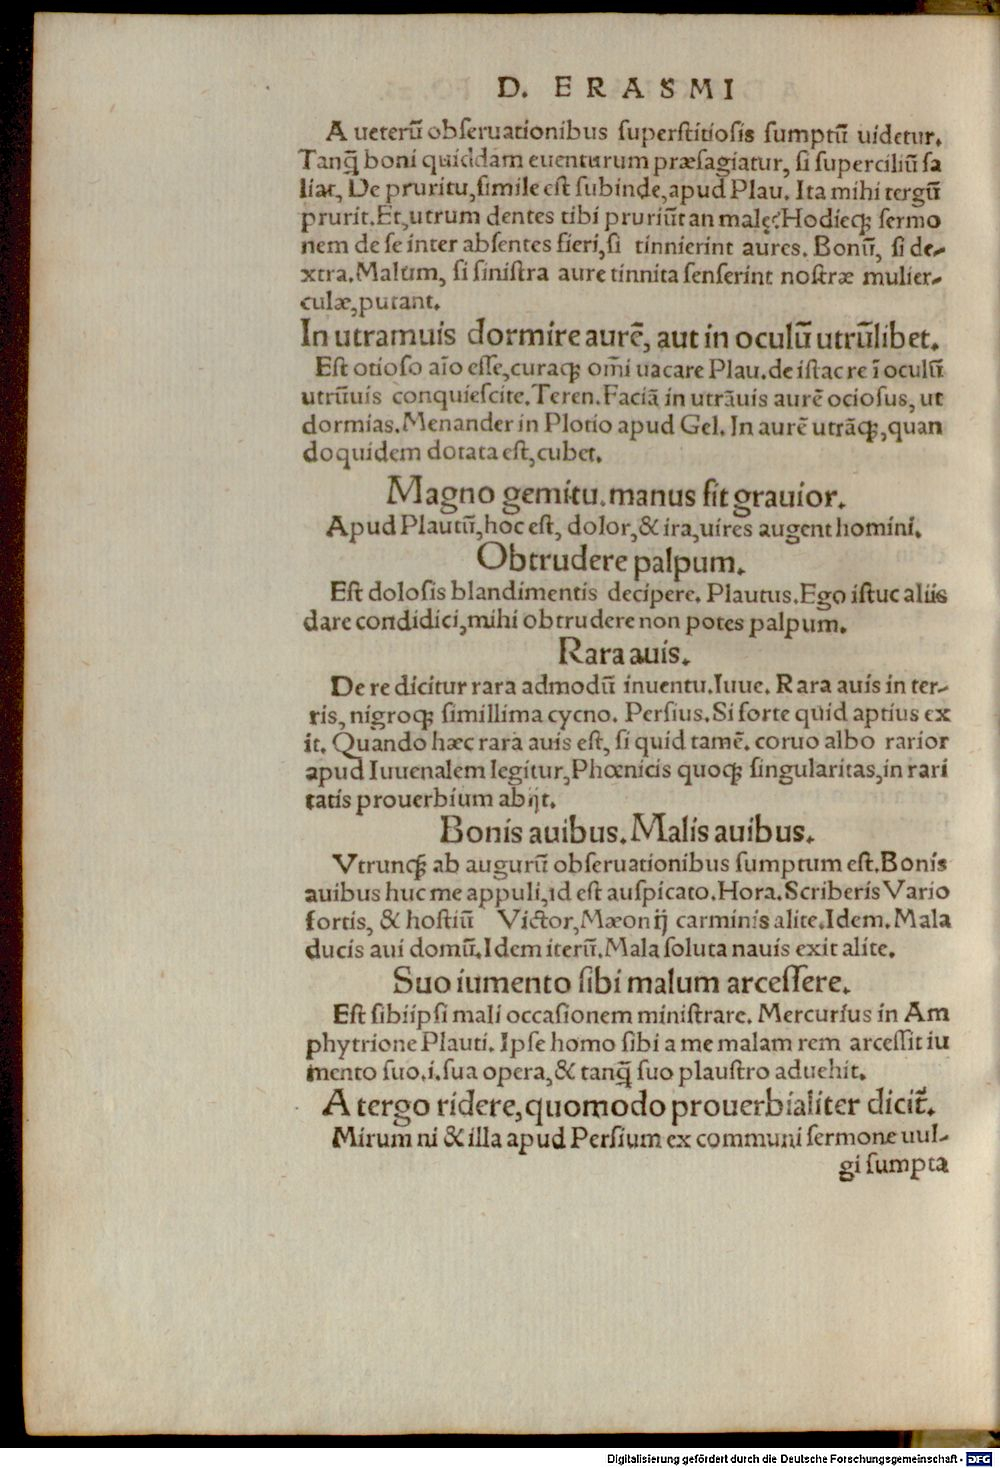 D. ERASMI
A ueterū obseruationibus superstitiosis sumptū uidetur.
Tanq̄ boni quiddam euenturum præsagiatur, si superciliū sa
liat, De pruritu, simile est subinde, apud Plau. Ita mihi tergū
prurit. Et, utrum dentes tibi pruriūt an malę? Hodieq; sermo
nem de se inter absentes fieri, si tinnierint aures. Bonū, si de-
xtra. Malum, si sinistra aure tinnita senserint nostræ mulier-
culæ, putant.
In utramuis dormire aurē, aut in oculū utrūlibet.
Est otioso aīo esse, curaq; om̄i uacare Plau. de istac re ī oculū
utrūuis conquiescite. Teren. Faciā in utrāuis aurē ociosus, ut
dormias. Menander in Plotio apud Gel. In aurē utrāq;, quan
doquidem dotata est, cubet.
Magno gemitu. manus fit grauior.
Apud Plautū, hoc est, dolor, & ira, uires augent homini.
Obtrudere palpum.
Est dolosis blandimentis decipere. Plautus. Ego istuc aliis
dare condidici, mihi obtrudere non potes palpum.
Rara auis.
De re dicitur rara admodū inuentu. Iuue. Rara auis in ter-
ris, nigroq; simillima cycno. Persius. Si forte quid aptius ex
it. Quando hæc rara auis est, si quid tamē. coruo albo rarior
apud Iuuenalem legitur, Phœnicis quoq; singularitas, in rari
tatis prouerbium abijt.
Bonis auibus. Malis auibus.
Vtrunq; ab augurū obseruationibus sumptum est. Bonis
auibus huc me appuli, id est auspicato. Hora. Scriberis Vario
fortis, & hostiū Victor, Mæonij carminis alite. Idem. Mala
ducis aui domū. Idem iterū. Mala soluta nauis exit alite.
Suo iumento sibi malum arcessere.
Est sibiipsi mali occasionem ministrare. Mercurius in Am
phytrione Plauti. Ipse homo sibi a me malam rem arcessit iu
mento suo. i. sua opera, & tanq̄ suo plaustro aduehit.
A tergo ridere, quomodo prouerbialiter dicit̄.
Mirum ni & illa apud Persium ex communi sermone uul-
gi sumpta
Digitalisierung gefördert durch die Deutsche Forschungsgemeinschaft - DFG